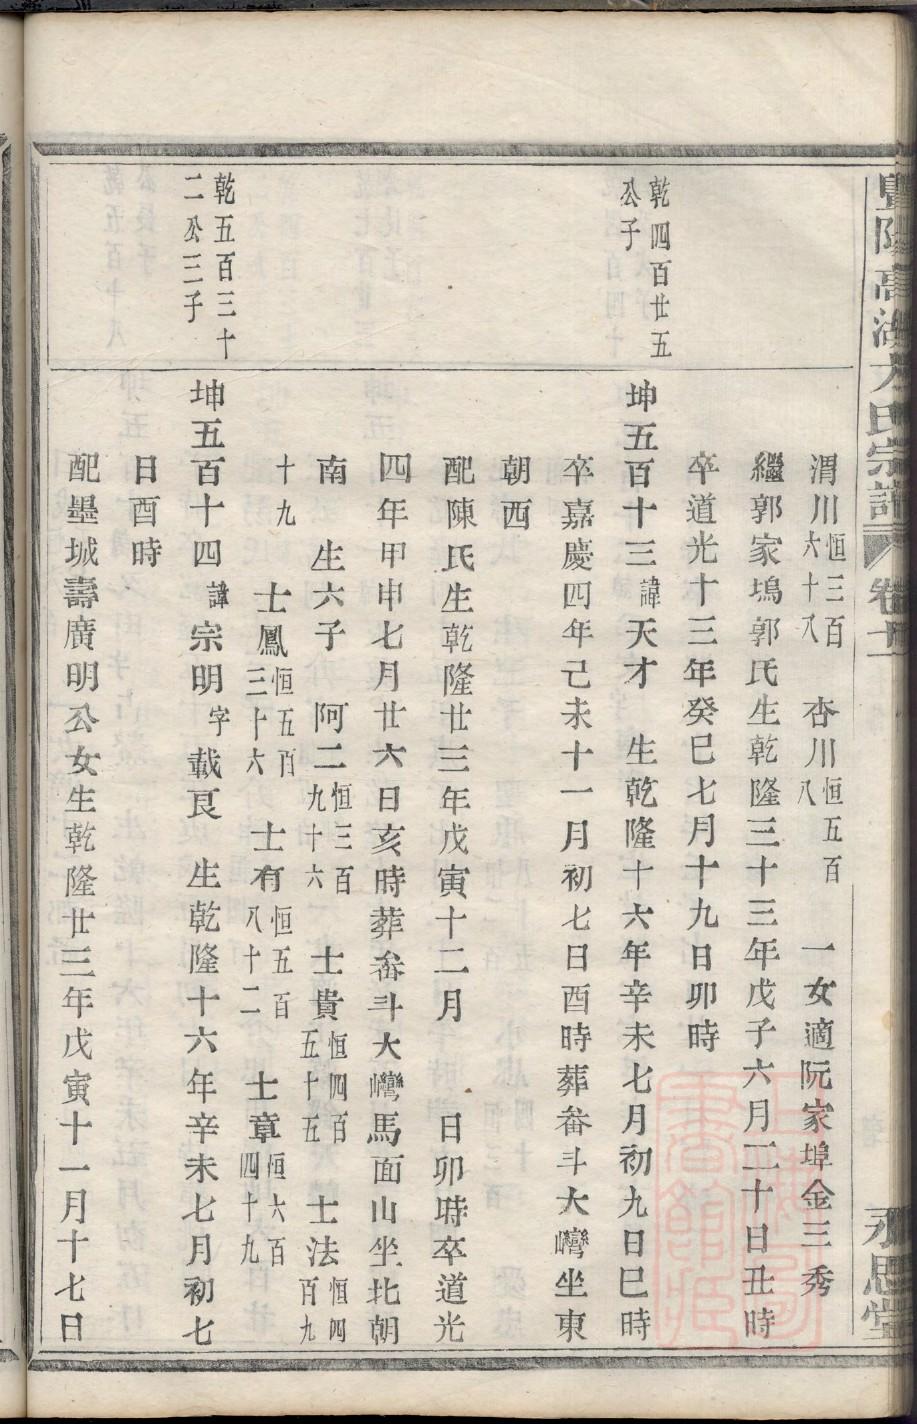 暨陽高湖方氏宗譜 卷 永思堂
渭川恒三百六十八 杏川恒五百八 一女適阮家埠金三秀
繼郭家塢郭氏生乾隆三十三年戊子六月二十日丑時
卒道光十三年癸巳七月十九日卯時
乾四百廿五公子
坤五百十三諱天才 生乾隆十六年辛未七月初九日巳時
卒嘉慶四年己未十一月初七日酉時葬畚斗大灣坐東
朝西
配陳氏生乾隆廿三年戊寅十二月 日卯時卒道光
四年甲申七月廿六日亥時葬畚斗大灣馬面山坐北朝
南 生六子 阿二恒三百九十六 士貴恒四百五十五 士法恒四百九
十九 士鳳恒五百三十六 士有恒五百八十二 士章恒六百四十九
乾五百三十二公三子
坤五百十四諱宗明字載良 生乾隆十六年辛未七月初七
日酉時
配墨城壽廣明公女生乾隆廿三年戊寅十一月十七日